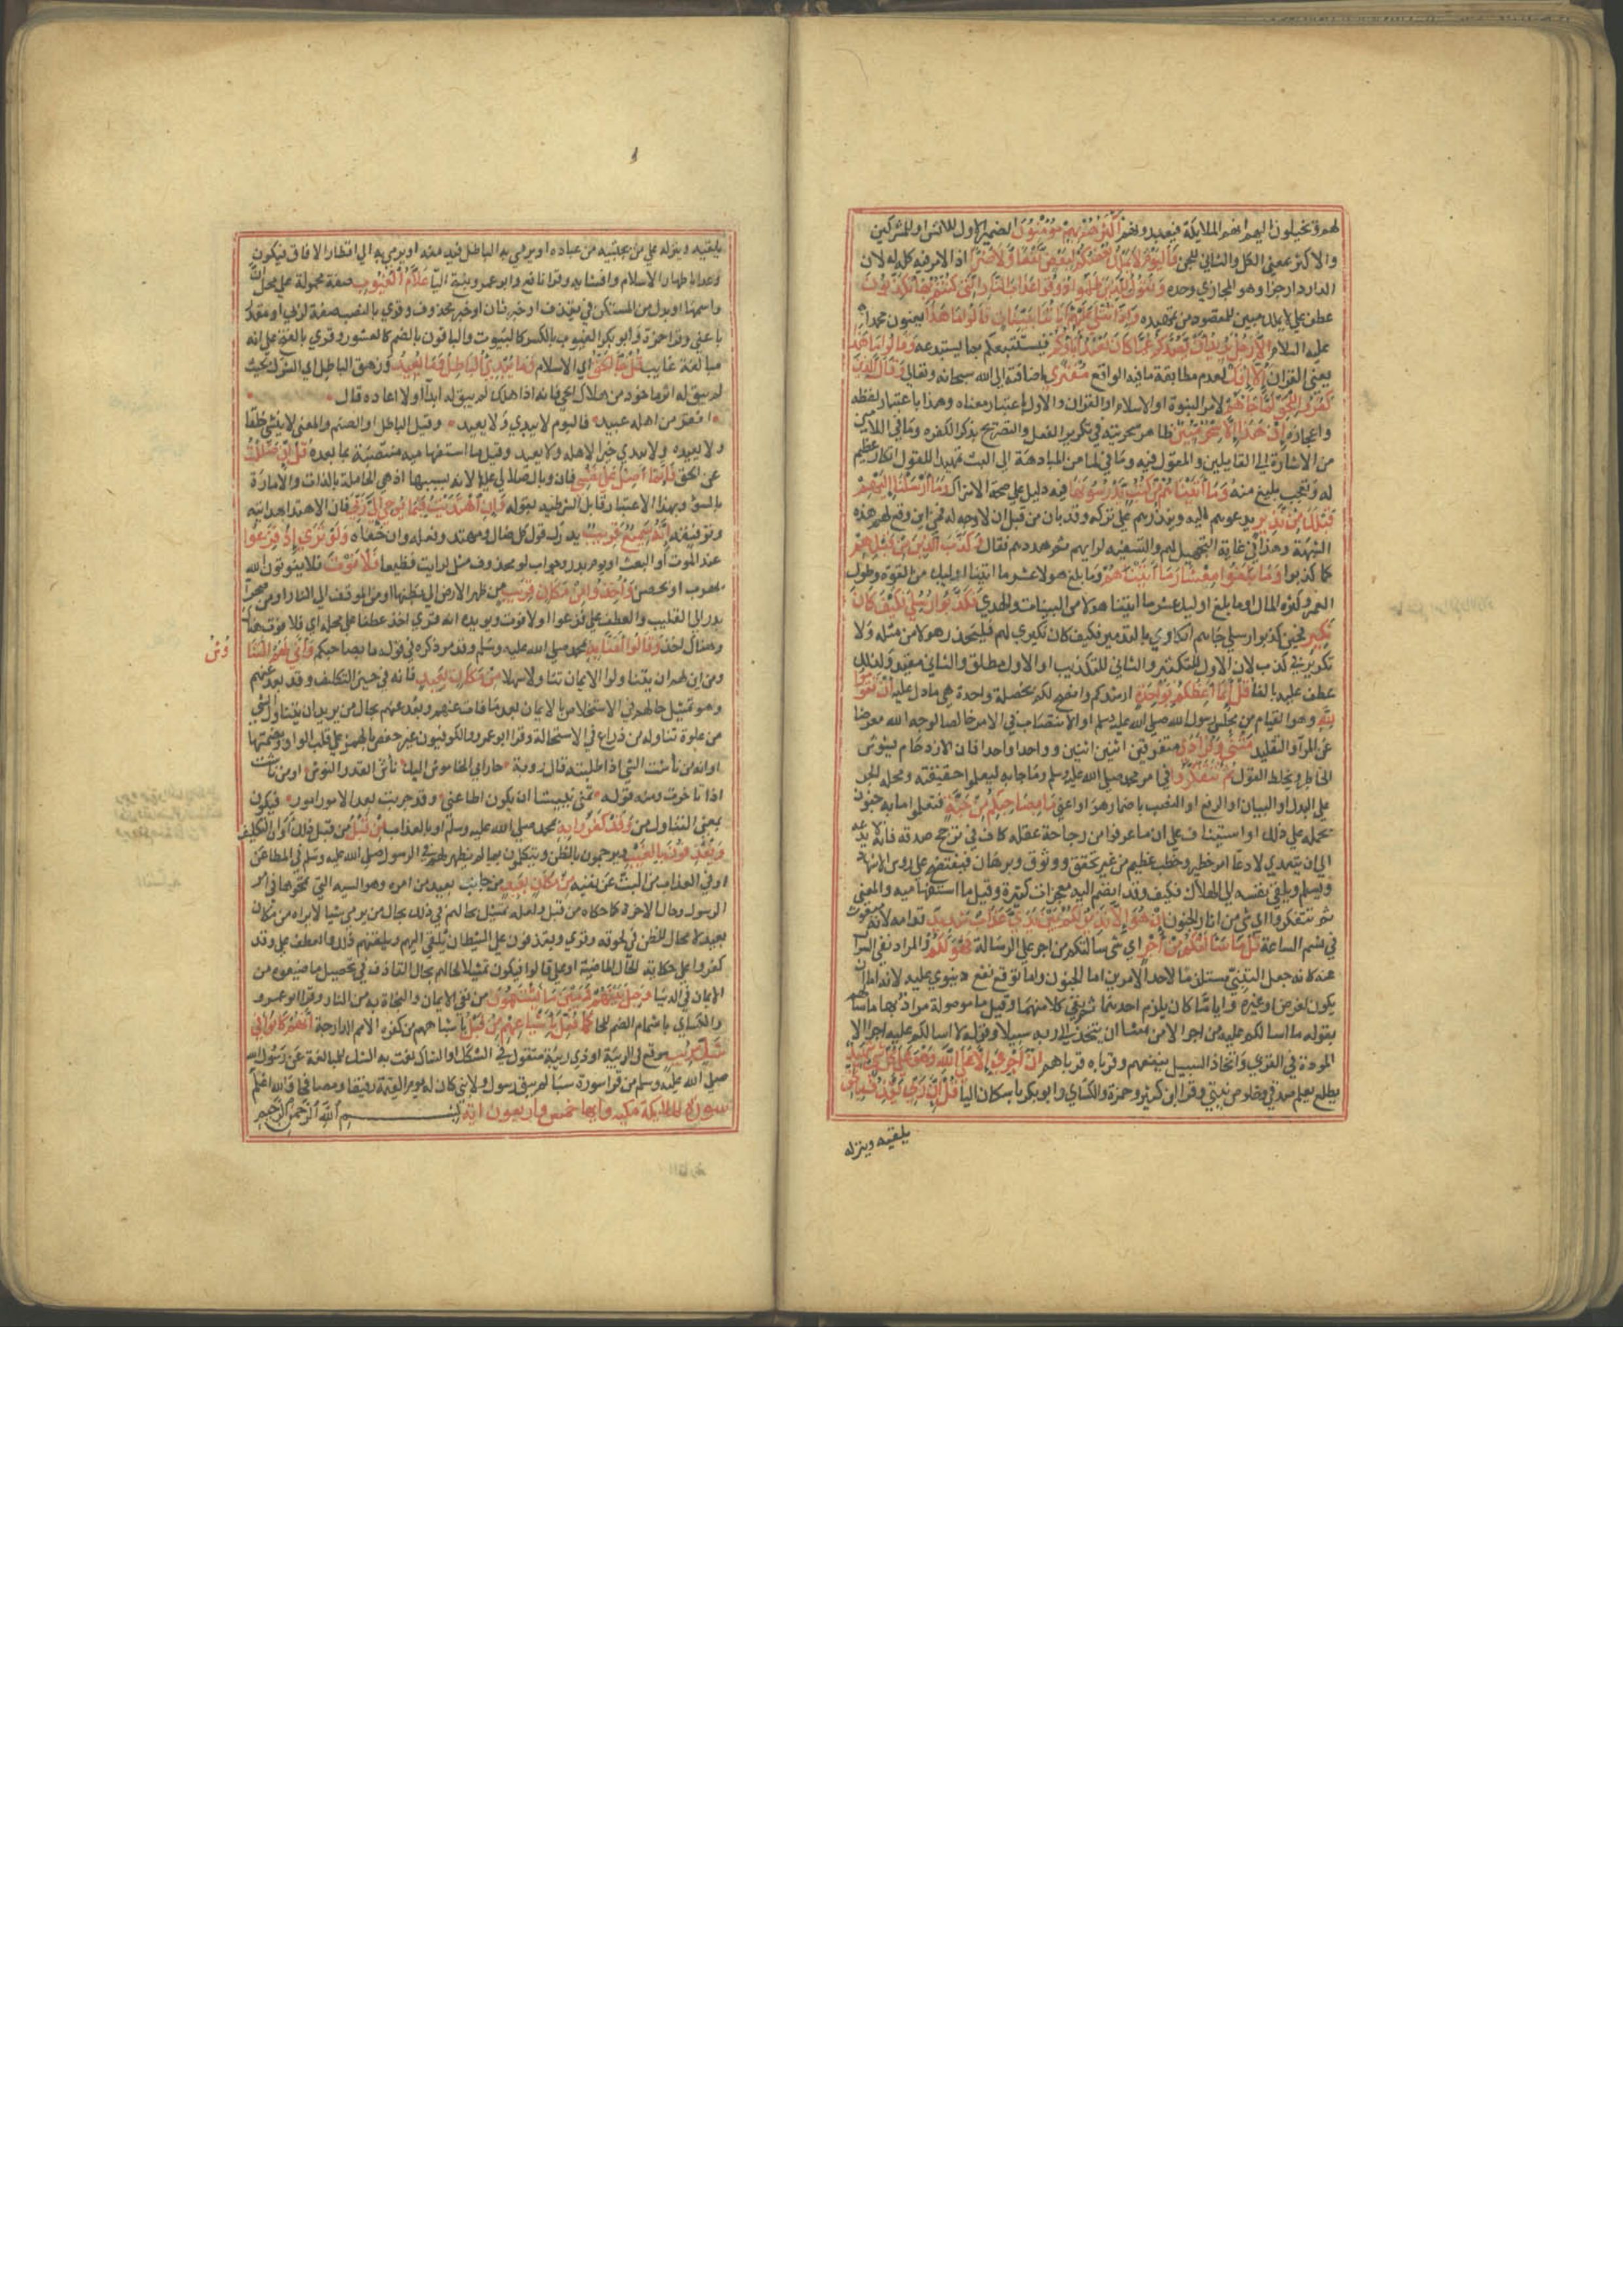 لهم وتخيلون اليهم انهم الملايكة فيعبدونهم أكثرهم بهم مؤمنون الضمير الاول للانس او للمشركين
والاكثر بمعنى الكل والثاني للجن فاليوم لا يملك بعضكم لبعض نفعا ولا ضرا اذ الامر فيه كله له لان
الدار دار جزا وهو المجازي وحده ونقول للذين ظلموا ذوقوا عذاب النار التي كنتم بها تكذبون
عطف على لا يملك مبين للمقصود من تمهيده وإذا تتلى عليهم آياتنا بينات قالوا ما هذا يعنون محمدا
عليه السلام إلا رجل يريد أن يصدكم عما كان يعبد آباؤكم فيستتبعكم بما يستبدعه وقالوا ما هذا
يعني القران إلا إفك لعدم مطابقة ما فيه الواقع مفترى باضافته الى الله سبحانه وتعالى وقال الذين
كفروا للحق لما جاءهم لامر النبوة او الاسلام او القران والاول باعتبار معناه وهذا باعتبار لفظه
واعجازه إن هذا إلا سحر مبين ظاهر سحريته وفي تكرير الفعل والتصريح بذكر الكفره وما في اللامين
من الاشارة الى القايلين والمقول فيه وما في لما من المبادهة الى البت تمهيدا للقول انكار عظيم
له وتعجب بليغ منه وما آتيناهم من كتب يدرسونها فيه دليل على صحة الاشراك وما أرسلنا إليهم
قبلك من نذير يدعوهم اليه وينذرهم على تركه وقد بان من قبل ان لا وجه له فمن اين وقع لهم هذه
الشبهة وهذا في غاية التجهيل لهم والتسفيه لرايهم ثم هددهم فقال وكذب الذين من قبلهم
كما كذبوا وما بلغوا معشار ما آتيناهم وما بلغ هولا عشر ما اتينا اوليك من القوة وطول
العمر وكثرة المال او ما بلغ اوليك عشر ما اتينا هولا من البينات والهدى فكذبوا رسلي فكيف كان
نكير فحين كذبوا رسلي جاهم انكاري بالتدمير فكيف كان نكيري لهم فليحذر هولا من مثله ولا
تكرير في كذب لان الاول للتكثير والثاني للتكذيب او الاول مطلق والثاني مقيد ولذلك
عطف عليه بالفا قل إنما أعظكم بواحدة ارشدكم وانصح لكم بخصلة واحدة هي ما دل عليه أن تقوموا
لله وهو القيام من مجلس رسول الله صلى الله عليه وسلم او الانتصاب في الامر خالصا لوجه الله معرضا
عن المراء والتقليد مثنى وفرادى متفرقين اثنين اثنين وواحدا واحدا فان الازدحام يشوش
الخاطر ويخلط القول ثم تتفكروا في امر محمد صلى الله عليه وسلم وما جا به ليعلموا حقيقته ومحله الجر
على البدل او البيان او الرفع او النصب باضمار هو او اعني ما بصاحبكم من جنة فتعلموا ما به جنون
يحمله على ذلك او استيناف على ان ما عرفوا من رجاحة عقله كاف في ترجح صدقه فانه لا يدعه
الى ان يتصدى لادعا امر خطير وخطب عظيم من غير تحقق ووثوق وبرهان فيفتضح على روس الاشهاد
ويسلم ويلقى نفسه الى الهلاك فكيف وقد انضم اليه معجزات كثيرة وقيل ما استفهامية والمعنى
ثم تتفكروا اي شي من اثار الجنون إن هو إلا نذير لكم بين يدي عذاب شديد قدامه لانه مبعوث
في نسم الساعة قل ما سألتكم من أجر اي شي سالتكم من اجر على الرسالة فهو لكم والمراد نفي السوال
عنه كانه جعل التنبي مستلزما لاحد الامرين اما الجنون واما توقع نفع دنيوي عليه لانه اما ان
يكون لغرض او غيره وايا ما كان يلزم احدهما ثم نفى كلا منهما وقيل ما موصولة مراد بها ما سالهم
بقوله ما اسالكم عليه من اجر الا من شا ان يتخذ الى ربه سبيلا وقوله لا اسالكم عليه اجرا الا
المودة في القربى واتخاذ السبيل ينفعهم وقرباه قرباهم إن أجري إلا على الله وهو على كل شيء شهيد
يطلع يعلم صدقي وخلوص نيتي وقرا ابن كثير وحمزة والكساي وابو بكر باسكان اليا قل إن ربي يقذف بالحق
يلقيه وينزله
يلقيه وينزله على من يجتبيه من عباده او يرمي به الباطل فيدمغه او يرمي به الى اقطار الافاق فيكون
وعدا باظهار الاسلام وافشايه وقرا نافع وابو عمرو بفتح اليا علام الغيوب صفة محمولة على محل ان
واسمها او بدل من المستكن في يقذف او خبر ثان او خبر محذوف وقري بالنصب صفة لربي او مقدرا
باعني وقرا حمزة وابو بكر الغيوب بالكسر كالبيوت والباقون بالضم كالعشور وقري بالفتح على انه
مبالغة غايب قل جاء الحق اي الاسلام وما يبدئ الباطل وما يعيد وزهق الباطل اي الشرك بحيث
لم يبق له اثر ماخوذ من هلاك الحي فانه اذا هلك لم يبق له ابدا ولا اعاده قال
اقفر من اهله عبيد فاليوم لا يبدي ولا يعيد وقيل الباطل او الصنم والمعنى لا ينشي خلقا
ولا يعيده ولا يبدي خيرا لاهله ولا يعيد وقيل ما استفهامية منتصبة بما بعده قل إن ضللت
عن الحق فإنما أضل على نفسي فان وبال ضلالي عليها لانه بسببها اذ هي الحاملة بالذات والامارة
بالسوء وبهذا الاعتبار قابل الشرطية بقوله وإن اهتديت فبما يوحي إلي ربي فان الاهتدا بهدايته
وتوفيقه إنه سميع قريب يدرك قول كل ضال ومهتد وفعله وان خفاه ولو ترى إذ فزعوا
عند الموت او البعث او يوم بدر وجواب لو محذوف مثل لرايت فظيعا فلا فوت فلا يفوتون الله
بهرب او تحصن وأخذوا من مكان قريب من ظهر الارض الى بطنها او من الموقف الى النار او من صحرا
بدر الى القليب والعطف على فزعوا او لا فوت ويويده انه قري اخذ عطفا على محله اي فلا فوت هناك
وهناك اخذ وقالوا آمنا به بمحمد صلى الله عليه وسلم وقد مر ذكره في قوله ما بصاحبكم وأنى لهم التناوش
ومن اين لهم ان يتناولوا الايمان تناولا سهلا من مكان بعيد فانه في حيز التكليف وقد بعد عنهم
وهو تمثيل حالهم في الاستخلاص بالايمان بعد ما فات عنهم وبعد عنهم بحال من يريد ان يتناول الشي
من غلوة تناوله من ذراع في الاستحالة وقرا ابو عمرو والكوفيون غير حفص بالهمز على قلب الواو لضمتها
او انه من ناشت الشي اذا طلبته قال روبة اليك ناش القدر النؤوش او من ناشت
اذا تاخرت ومنه قوله تمنى نئيشا ان يكون اطاعني وقد حدثت بعد الامور امور فيكون
بمعنى التناول من وقد كفروا به بمحمد صلى الله عليه وسلم او بالعذاب من قبل من قبل ذلك اوان التكليف
ويقذفون بالغيب ويرجمون بالظن ويتكلمون بما لم يظهر لهم في الرسول صلى الله عليه وسلم في المطاعن
او في العذاب من البت عن نفيه من مكان بعيد من جانب بعيد من امره وهو الشبه التي تمحلوها في امر
الرسول وحال الاخرة كما حكاه من قبل ولعله تمثيل لحالهم في ذلك بحال من يرمي شيا لا يراه من مكان
بعيد لا مجال للظن في لحوقه وقري ويقذفون على ان الشيطان يلقي اليهم ويلقنهم ذلك والعطف على وقد
كفروا على حكاية الحال الماضية او على قالوا فيكون تمثيلا لحالهم بحال القاذف في تحصيل ما ضيعوه من
الايمان في الدنيا وحيل بينهم وبين ما يشتهون من نفع الايمان والنجاة به من النار وقرا ابن عامر
والكساي باشمام الضم للحا كما فعل بأشياعهم من قبل باشباههم من كفرة الامم الدارجة إنهم كانوا في
شك مريب موقع في الريبة او ذي ريبة منقول من المشكك او الشاك نعت به الشك للمبالغة عن رسول الله
صلى الله عليه وسلم من قرا سورة سبا لم يبق رسول ولا نبي كان له يوم القيمة رفيقا ومصافحا والله اعلم
سورة الملايكة مكية وايها خمس واربعون اية بسم الله الرحمن الرحيم